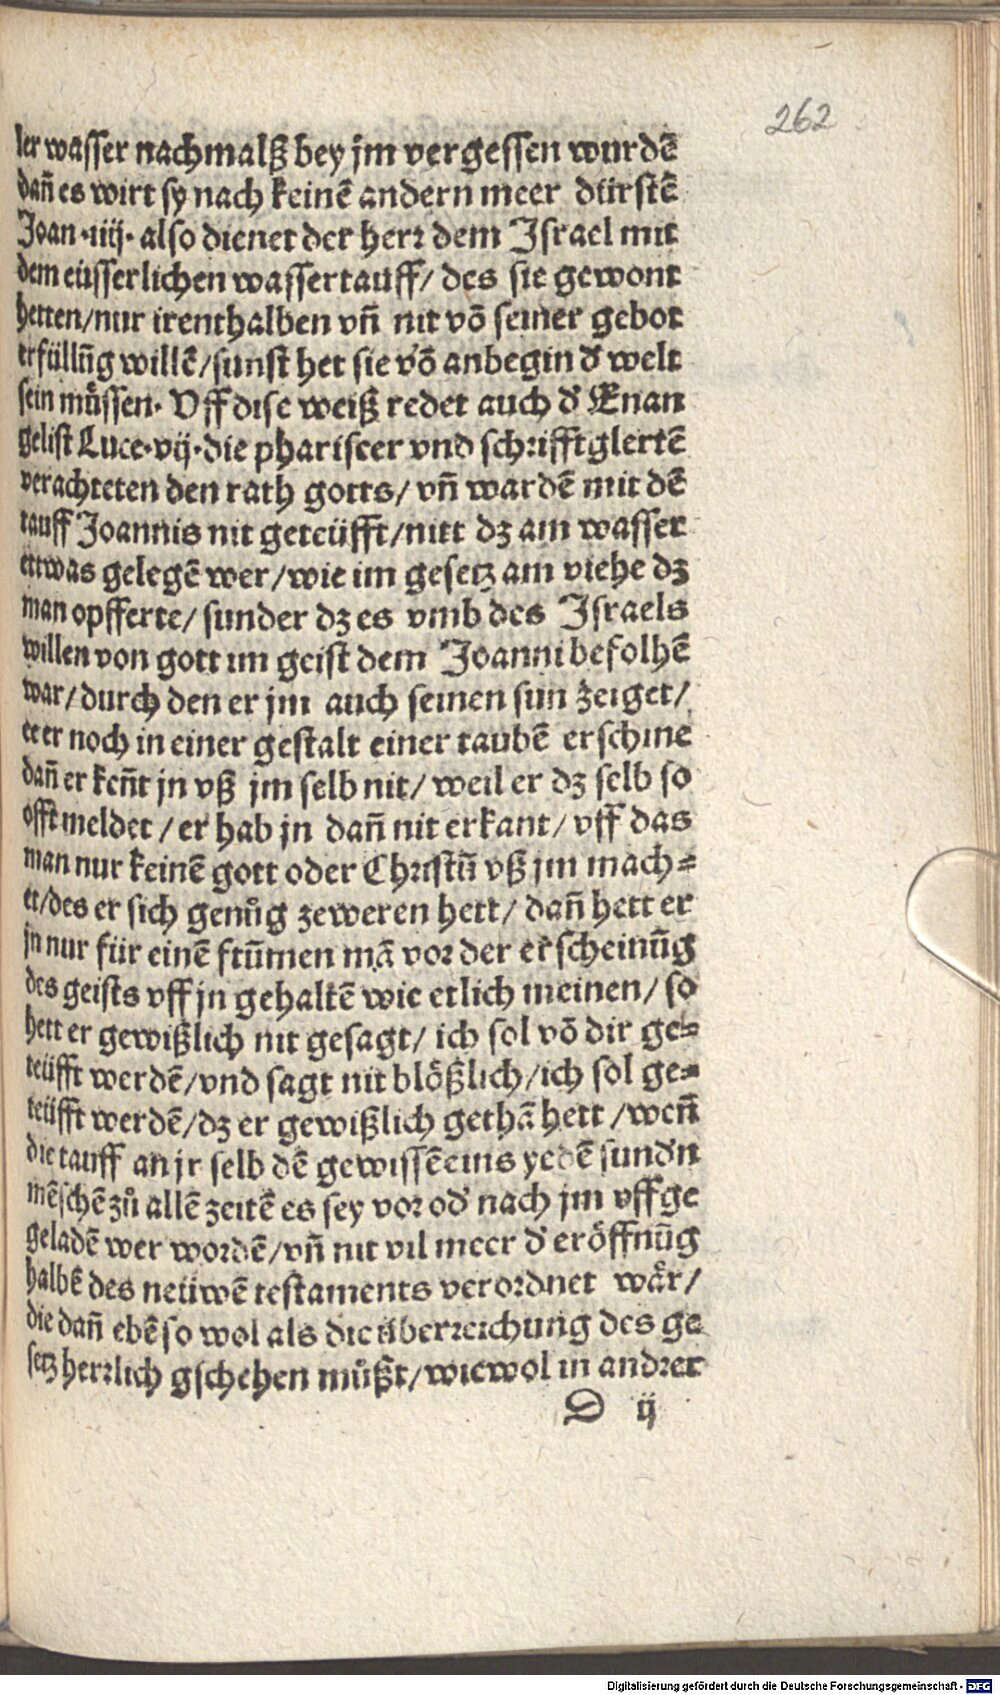 262
ler wasser nachmalß bey jm vergessen wurdē
dañ es wirt sy nach keinē andern meer dürstē
Joan .iiij. also dienet der herr dem Israel mit
dem eüsserlichen wassertauff/ des sie gewont
hetten/nur irenthalben vñ nit vō seiner gebot
erfüllūg willē/sunst het sie vō anbegin d' welt
sein müssen. Vff dise weiß redet auch d' Euan
gelist Luce.vij.die phariseer vnd schrifftglertē
verachteten den rath gotts/ vñ wardē mit dē
tauff Joannis nit geteüfft/nitt dz am wasser
ettwas gelegē wer/wie im gesetz am viehe dz
man opfferte/ sunder dz es vmb des Israels
willen von gott im geist dem Joanni befolhē
war/durch den er jm auch seinen sun zeiget/
ee er noch in einer gestalt einer taubē erschine
dañ er keñt jn vß jm selb nit/ weil er dz selb so
offt meldet /er hab jn dañ nit erkant/ vff das
man nur keinē gott oder Christū vß jm mach⸗
et/des er sich genůg zeweren hett/ dañ hett er
jn nur für einē frūmen mā vor der erscheinūg
des geists vff jn gehaltē wie etlich meinen/ so
hett er gewißlich nit gesagt/ ich sol vō dir ge⸗
teüfft werdē/vnd sagt nit blößlich/ich sol ge⸗
teüfft werdē/dz er gewißlich gethā hett /weñ
die tauff an jr selb dē gewissē eins yedē sund'n
mēschē zů allē zeitē es sey vor od' nach jm vffge
geladē wer wordē/vñ nit vil meer d' eröffnūg
halbē des neüwē testaments verordnet wär/
die dañ ebē so wol als die überreichung des ge
setz herrlich gschehen müßt/wiewol in andrer
D ij
Digitalisierung gefördert durch die Deutsche Forschungsgemeinschaft - DFG